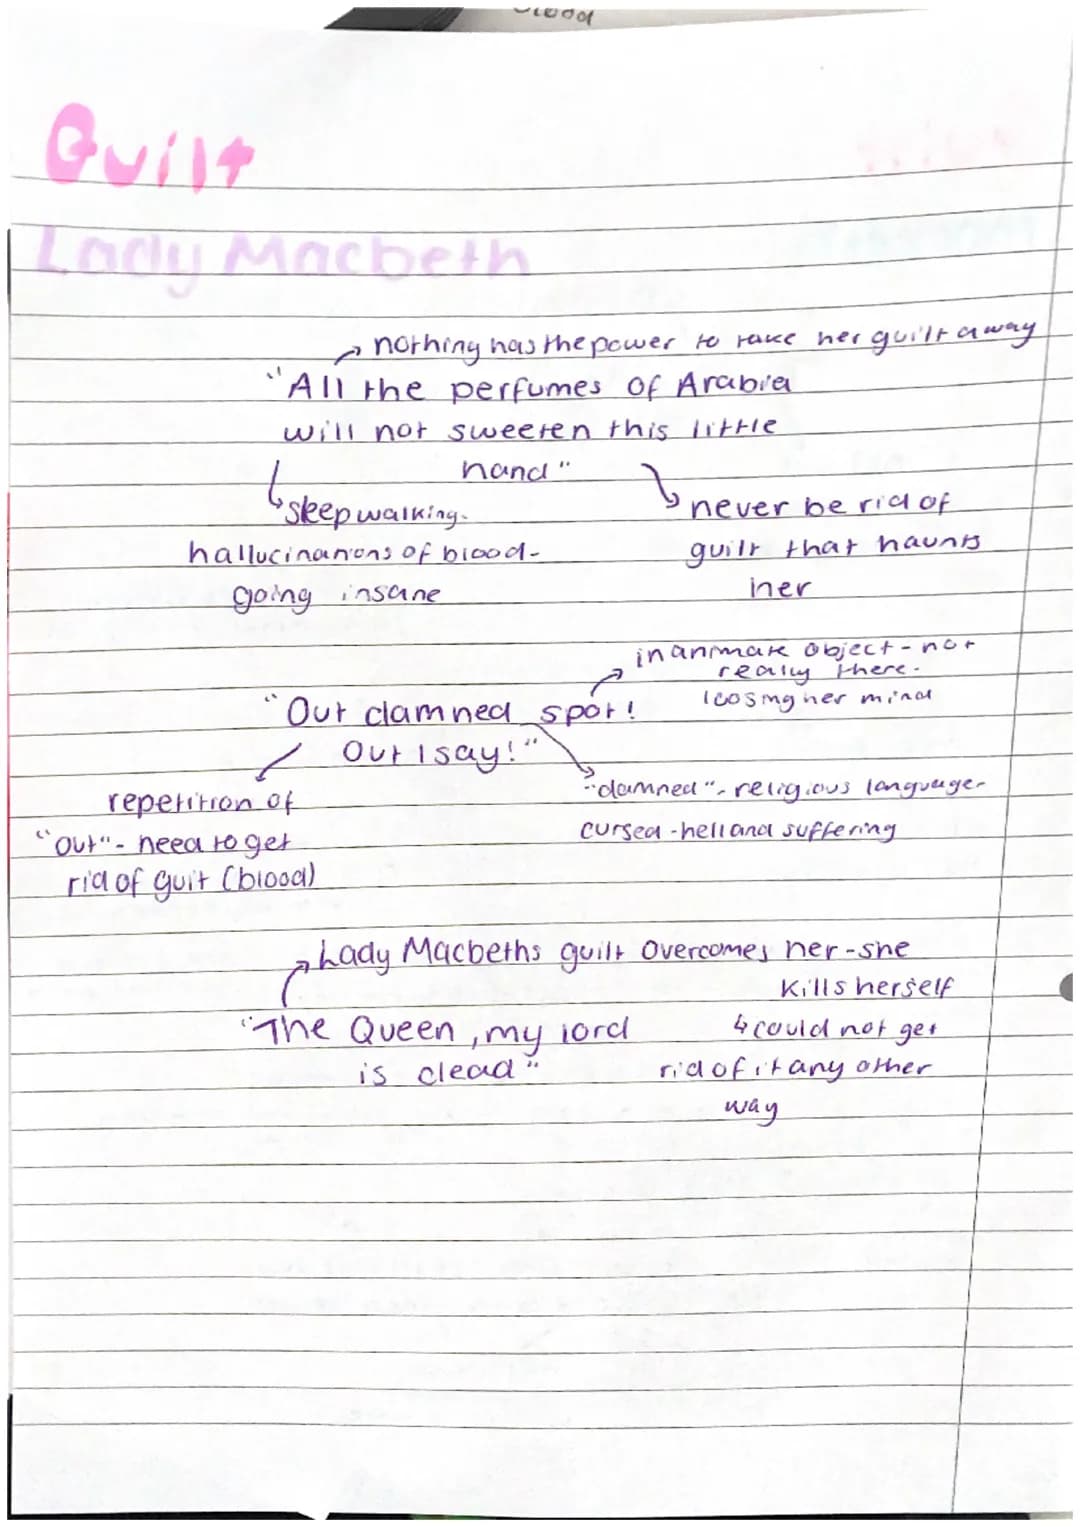 Guilt
Lady Macbeth
nothing has the power to take her guilt away
"All the perfumes of Arabia
will not sweeten this little
hand"
sleepwalking-
hallucinations of blood-
going insane
never be rid of
guilt that haunts
her
inanimate object - not
really there.
loosing her mind
"Out damned spot!
Out I say!"
repetition of
"out" - need to get
rid of guit (blood)
"damned" - religious language-
cursed - hell and suffering
Lady Macbeths guilt overcomes her - she
kills herself
↳ could not get
rid of it any other
way
"The Queen, my lord
is dead"